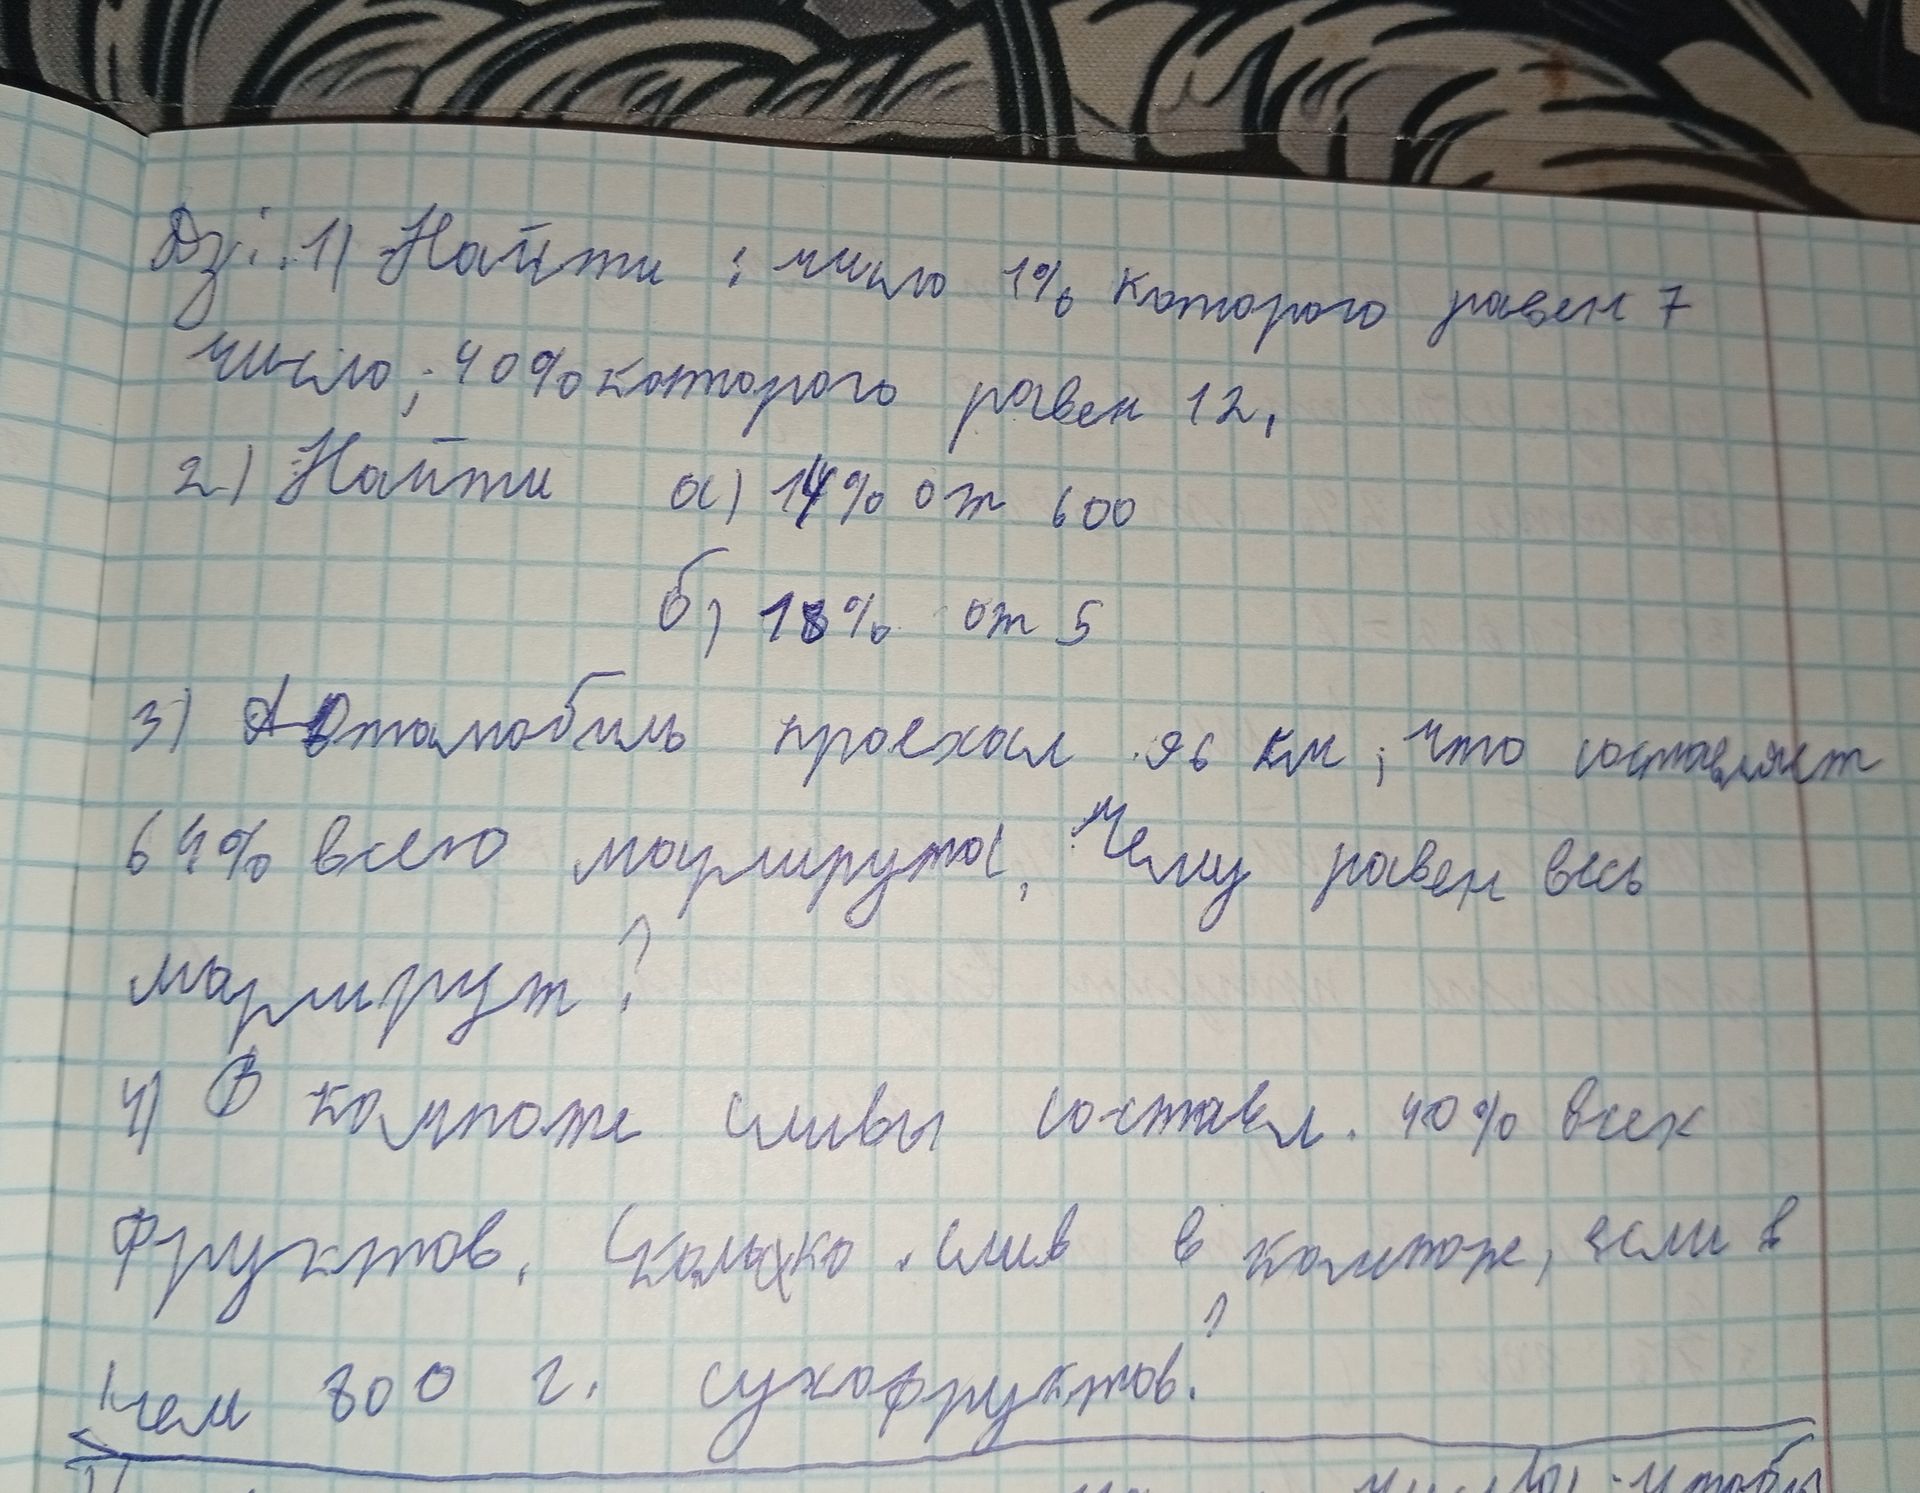 Дз: 1) Найти : число 1% которого равен 7
число, 40% которого равен 12.
2) Найти а) 14% от 600
б) 18% от 5
3) Автомобиль проехал 96 км, что составляет
64% всего маршрута. Чему равен весь
маршрут?
4) В компоте сливы составл. 40% всех
фруктов. Сколько слив в компоте, если в
нем 800 г. сухофруктов?